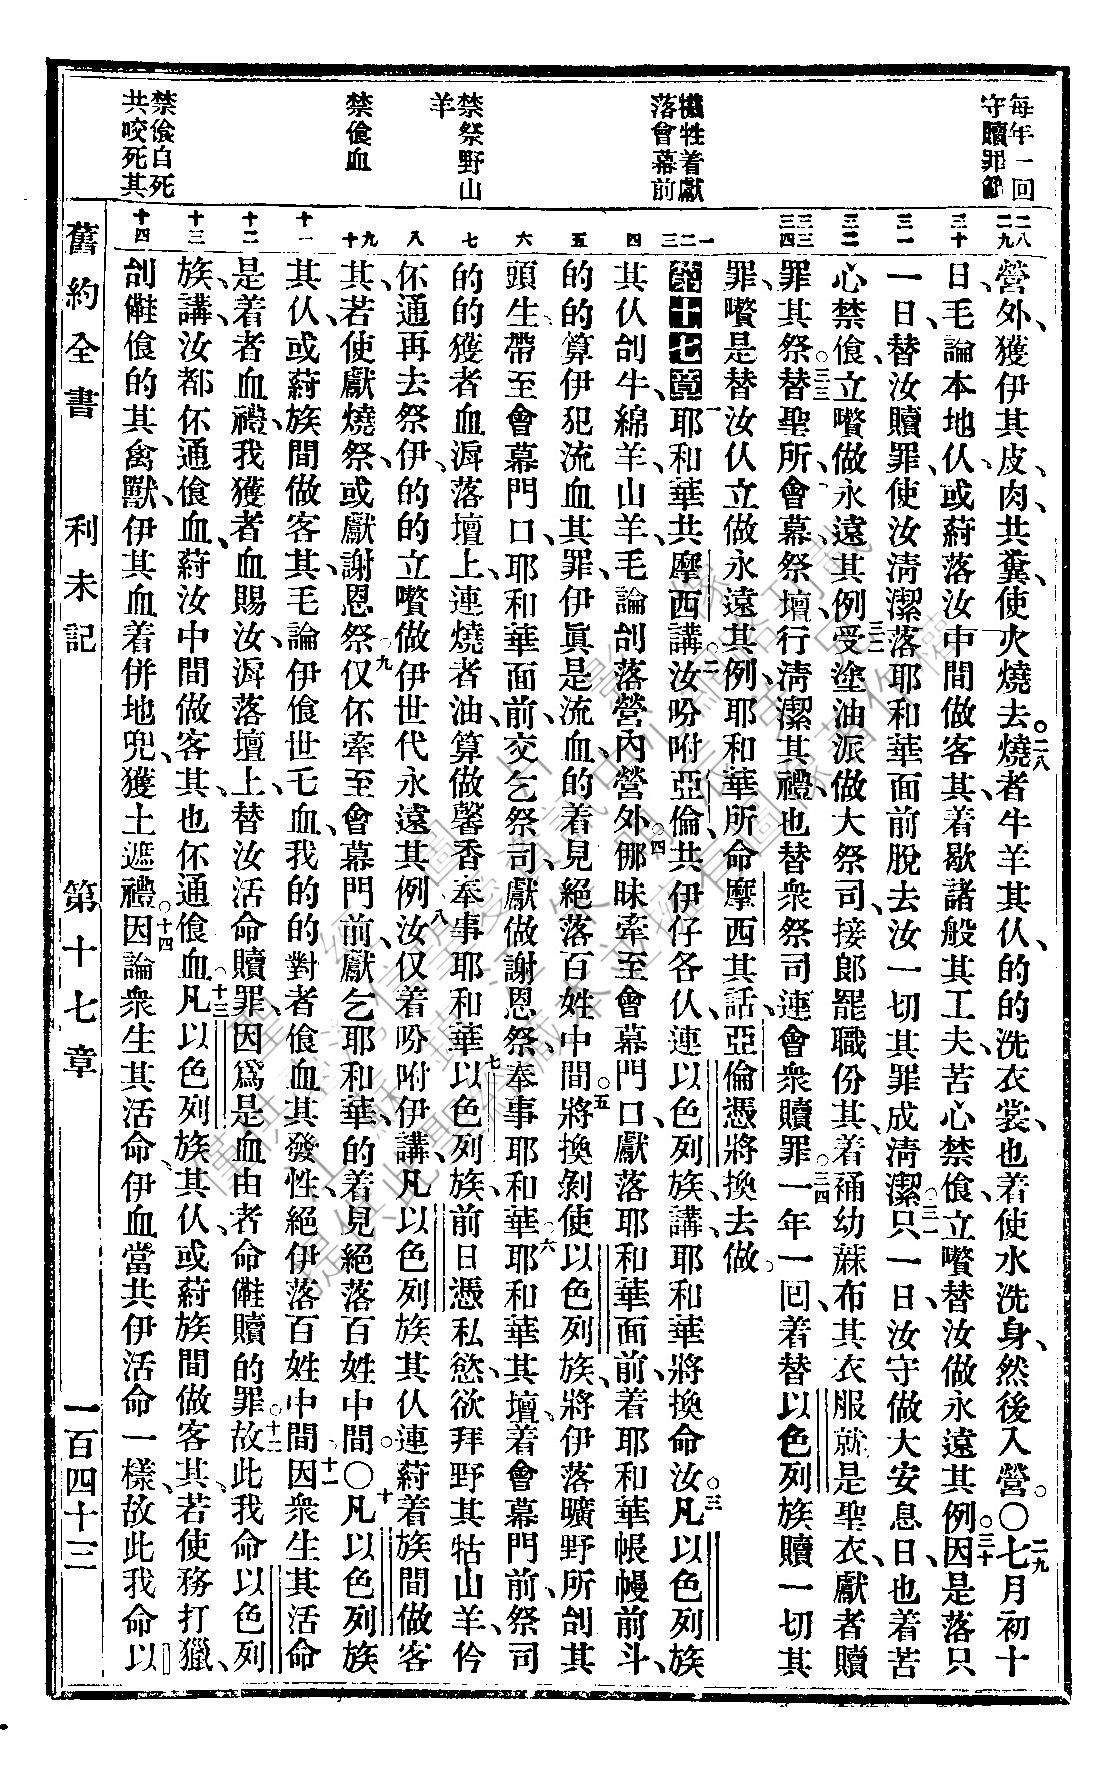 每年一回
守贖罪節
犧牲着獻
落會幕前
禁祭野山
羊
禁食血
禁食自死
共咬死其
二八
二九
三十
三一
三二
三三
三四
一
二
三
四
五
六
七
八
九
十
十一
十二
十三
十四
營外、獲伊其皮、肉、共糞、使火燒去。二八燒者牛羊其伩、的的洗衣裳、也着使水洗身、然後入營。〇二九七月初十
日、毛論本地伩、或䔟落汝中間做客其、着歇諸般其工夫、苦心禁食、立嚽替汝做永遠其例。三十因是落只
一日、替汝贖罪、使汝淸潔、落耶和華面前脫去汝一切其罪成淸潔。三一只一日汝守做大安息日、也着苦
心禁食、立嚽做永遠其例。三二受塗油派做大祭司、接郎罷職份其、着䘵幼蔴布其衣服、就是聖衣、獻者贖
罪其祭。三三替聖所、會幕、祭壇、行淸潔其禮、也替衆祭司、連會衆贖罪。三四一年一回、着替以色列族贖一切其
罪、嚽是替汝伩立做永遠其例、耶和華所命摩西其話、亞倫憑將換去做。
第十七章 一耶和華共摩西講、二汝吩咐亞倫共伊仔各伩、連以色列族、講、耶和華將換命汝。三凡以色列族
其伩刣牛、綿羊、山羊、毛論刣落營內營外、四那昧牽至會幕門口、獻落耶和華面前、着耶和華帳幔前斗、
的的算伊犯流血其罪、伊眞是流血、的着見絕落百姓中間。五將換剝使以色列族、將伊落曠野所刣其
頭生帶至會幕門口、耶和華面前、交乞祭司、獻做謝恩祭、奉事耶和華。六耶和華其壇、着會幕門前、祭司
的的獲者血㴙落壇上、連燒者油、算做馨香奉事耶和華。七以色列族、前日憑私慾欲拜野其牯山羊、仱
伓通再去祭伊、的的立嚽做伊世代永遠其例。八汝仅着吩咐伊講、凡以色列族其伩連䔟着族間做客
其、若使獻燒祭、或獻謝恩祭、九仅伓牽至會幕門前、獻乞耶和華、的着見絕落百姓中間。〇十凡以色列族
其伩、或䔟族間做客其、毛論伊食世乇血、我的的對者食血其發性、絕伊落百姓中間。十一因衆生其活命
是着者血禮、我獲者血賜汝、㴙落壇上、替汝活命贖罪、因爲是血由者命䧹贖的罪。十二故此我命以色列
族、講、汝都伓通食血、䔟汝中間做客其、也伓通食血。十三凡以色列族其伩、或䔟族間做客其、若使務打獵、
刣䧹食的其禽獸、伊其血着併地兜、獲土遮禮。十四因論衆生其活命、伊血當共伊活命一樣、故此我命以
舊約全書 利未記 第十七章 一百四十三